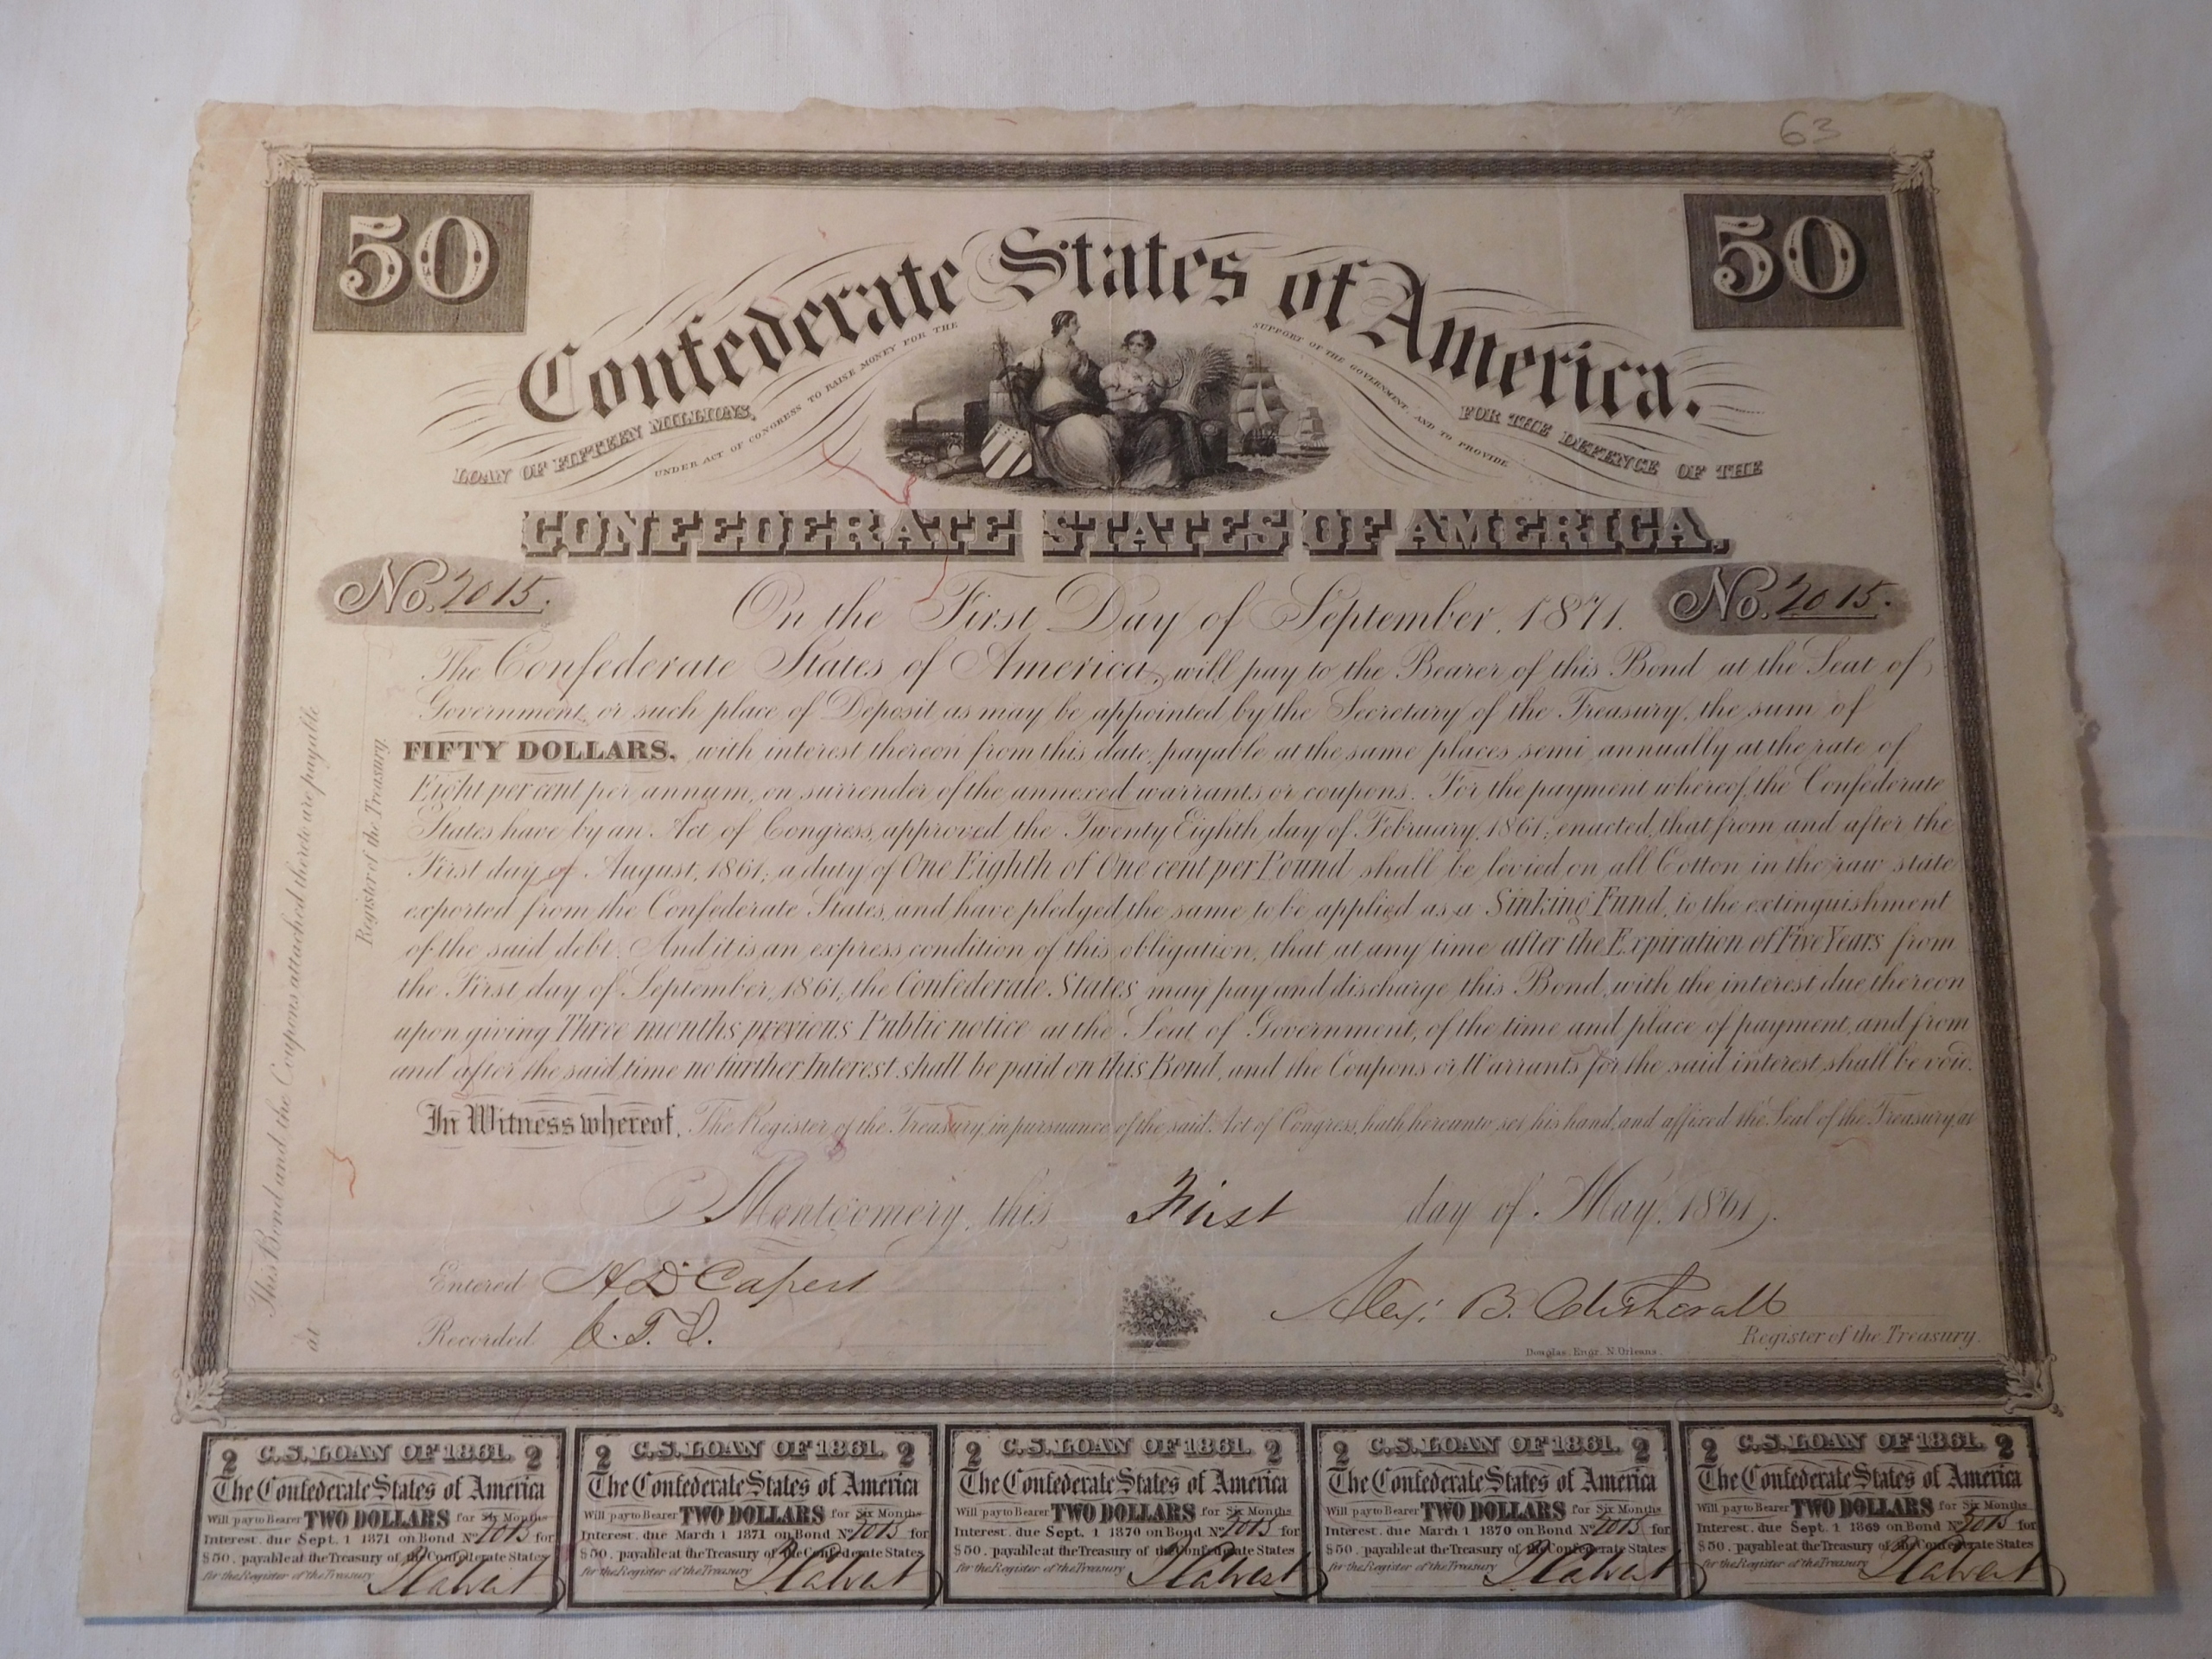 63
50
50
Confederate States of America.
LOAN OF FIFTEEN MILLIONS,
UNDER ACT OF CONGRESS TO RAISE MONEY FOR THE
SUPPORT OF THE GOVERNMENT, AND TO PROVIDE
FOR THE DEFENCE OF THE
CONFEDERATE STATES OF AMERICA,
No. 2015.
On the First Day of September, 1871.
No. 2015.
The Confederate States of America, will pay to the Bearer of this Bond at the Seat of
Government, or such place of Deposit as may be appointed by the Secretary of the Treasury, the sum of
FIFTY DOLLARS, with interest thereon from this date, payable at the same places semi annually at the rate of
Eight per cent per annum, on surrender of the annexed warrants or coupons. For the payment whereof, the Confederate
States have by an Act of Congress, approved the Twenty Eighth day of February, 1861; enacted, that from and after the
First day of August, 1861, a duty of One Eighth of One cent per Pound shall be levied on all Cotton in the raw state
exported from the Confederate States, and have pledged the same to be applied as a Sinking Fund, to the extinguishment
of the said debt. And it is an express condition of this obligation, that at any time after the Expiration of Five Years from
the First day of September, 1861, the Confederate States may pay and discharge this Bond, with the interest due thereon
upon giving Three months previous Public notice at the Seat of Government, of the time and place of payment, and from
and after the said time no further Interest shall be paid on this Bond, and the Coupons or Warrants for the said interest shall be void.
In Witness whereof, The Register of the Treasury, in pursuance of the said Act of Congress, hath hereunto set his hand, and affixed the Seal of the Treasury, at
Montgomery, this First day of May, 1861.
Entered H D Capers
Recorded C. T. J.
Alex: B. Clitherall
Register of the Treasury.
Douglas. Engr. N. Orleans.
This Bond and the Coupons attached thereto are payable
at
Register of the Treasury.
2 C.S. LOAN OF 1861. 2
The Confederate States of America
Will pay to Bearer TWO DOLLARS for Six Months
Interest. due Sept. 1 1871 on Bond No 2015 for
$50. payable at the Treasury of the Confederate States
for the Register of the Treasury
2 C.S. LOAN OF 1861. 2
The Confederate States of America
Will pay to Bearer TWO DOLLARS for Six Months
Interest. due March 1 1871 on Bond No 2015 for
$50. payable at the Treasury of the Confederate States
for the Register of the Treasury
2 C.S. LOAN OF 1861. 2
The Confederate States of America
Will pay to Bearer TWO DOLLARS for Six Months
Interest. due Sept. 1 1870 on Bond No 2015 for
$50. payable at the Treasury of the Confederate States
for the Register of the Treasury
2 C.S. LOAN OF 1861. 2
The Confederate States of America
Will pay to Bearer TWO DOLLARS for Six Months
Interest. due March 1 1870 on Bond No 2015 for
$50. payable at the Treasury of the Confederate States
for the Register of the Treasury
2 C.S. LOAN OF 1861. 2
The Confederate States of America
Will pay to Bearer TWO DOLLARS for Six Months
Interest. due Sept. 1 1869 on Bond No 2015 for
$50. payable at the Treasury of the Confederate States
for the Register of the Treasury